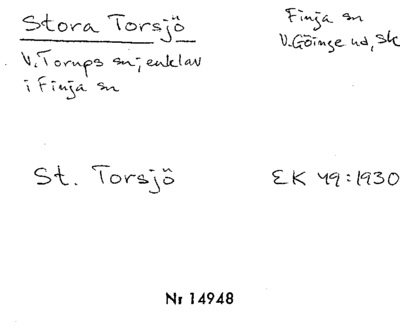 Stora Torsjö
Finja sn
V. Göinge hd, Sk
V. Torups sn; enklav
i Finja sn
St. Torsjö
EK 49:1930
Nr 14948